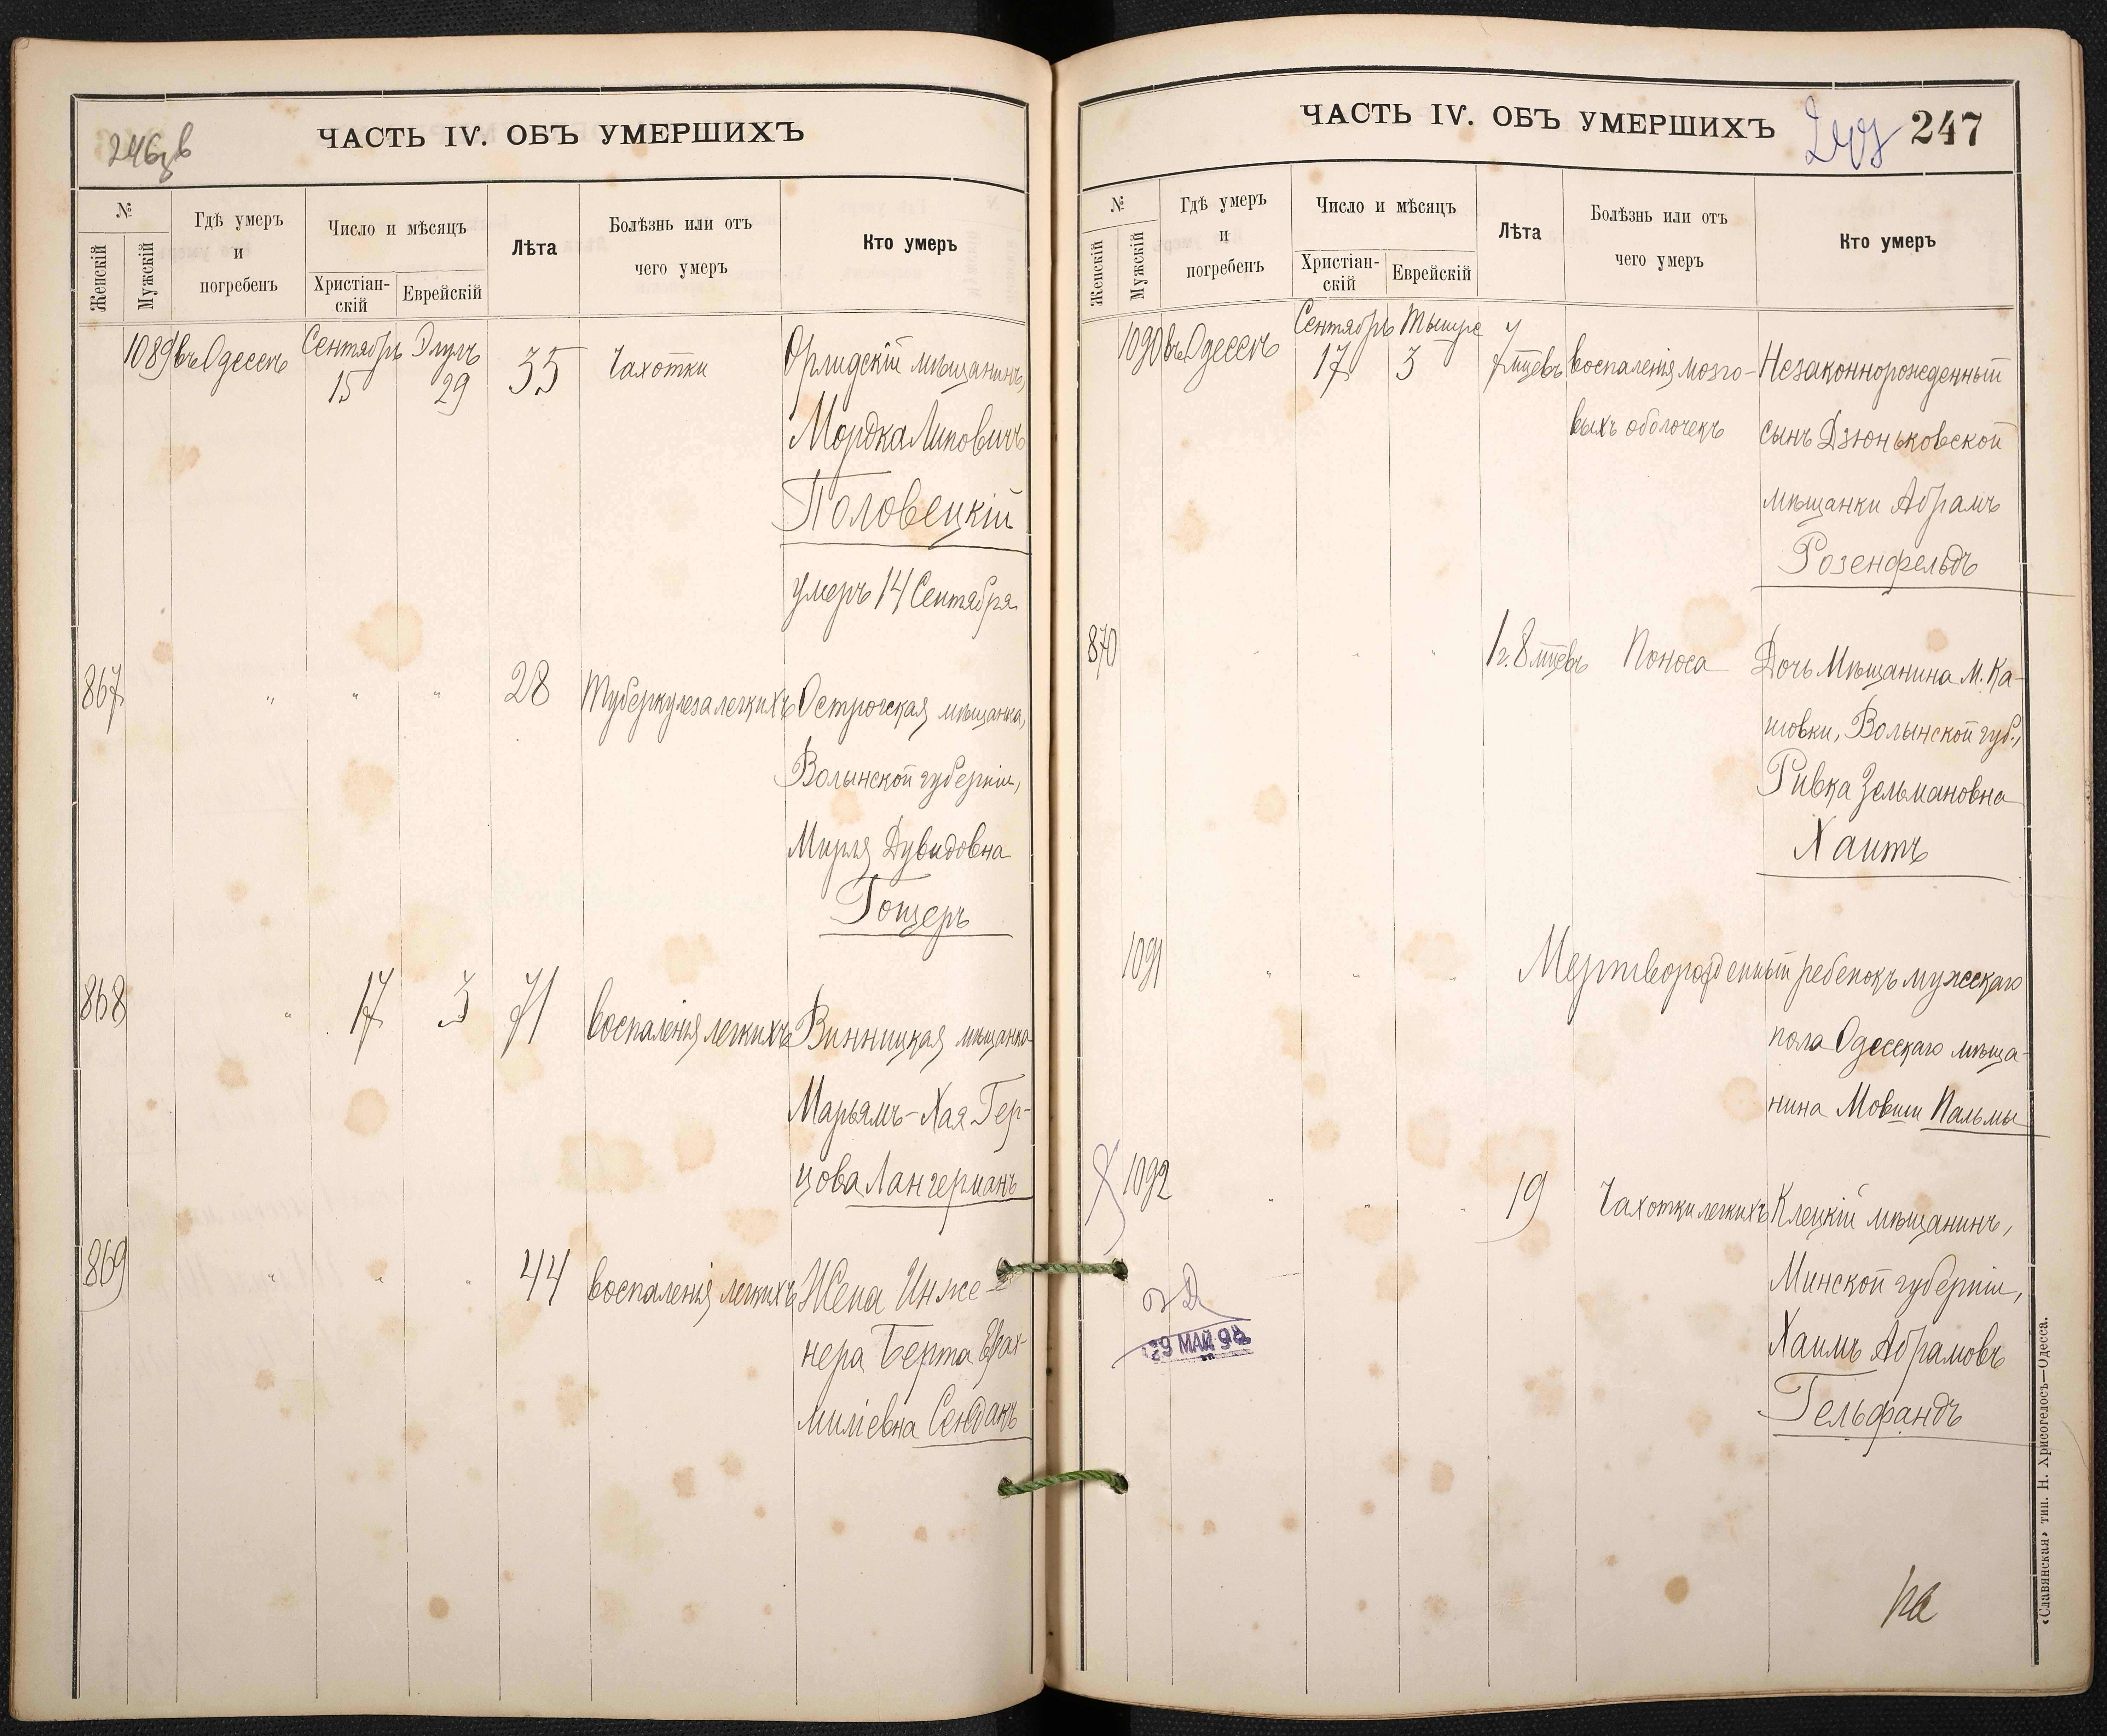 ЧАСТЬ IV. ОБЪ УМЕРШИХЪ
№
Женскій
Мужскій
Гдѣ умеръ
и
погребенъ
Число и мѣсяцъ
Христіан-
скій
Еврейскій
Лѣта
Болѣзнь или отъ
чего умеръ
Кто умеръ
1089 въ Одессѣ Сентябрь 15 Элулъ 29 35 Чахотки мѣщанинъ,
Мордка Липовичъ
Половецкій
умеръ 14 Сентября
867 " " " 28 Туберкулеза легкихъ Острогская мѣщанка,
Волынской губерніи,
Мирля Дувидовна
Гощеръ
868 " 17 3 71 воспаленія легкихъ Винницкая мѣщанка
Марьямъ-Хая Гер-
цова Лангерманъ
869 " " " 44 воспаленія легкихъ Жена Инже-
нера Берта
Сендакъ
ЧАСТЬ IV. ОБЪ УМЕРШИХЪ
247
№
Женскій
Мужскій
Гдѣ умеръ
и
погребенъ
Число и мѣсяцъ
Христіан-
скій
Еврейскій
Лѣта
Болѣзнь или отъ
чего умеръ
Кто умеръ
1090 въ Одессѣ Сентябрь 17 3 7 мцевъ воспаленія мозго- Незаконнорожденный
выхъ оболочекъ сынъ Дзюньковской
мѣщанки Абрамъ
Розенфельдъ
870 " " " 1 г. 8 мцевъ Поноса Дочь Мѣщанина м. Ка-
шовки, Волынской губ.,
Ривка Зельмановна
Хаитъ
1091 " " " Мертворожденный ребенокъ мужескаго
пола Одесскаго мѣща-
нина Мовши Пальмы
1092 " " " 19 Чахотки легкихъ Клецкій мѣщанинъ,
Минской губерніи,
Хаимъ Абрамовъ
Гельфандъ
29 МАЙ 98
«Славянская» тип. Н. Хрисогелосъ—Одесса.